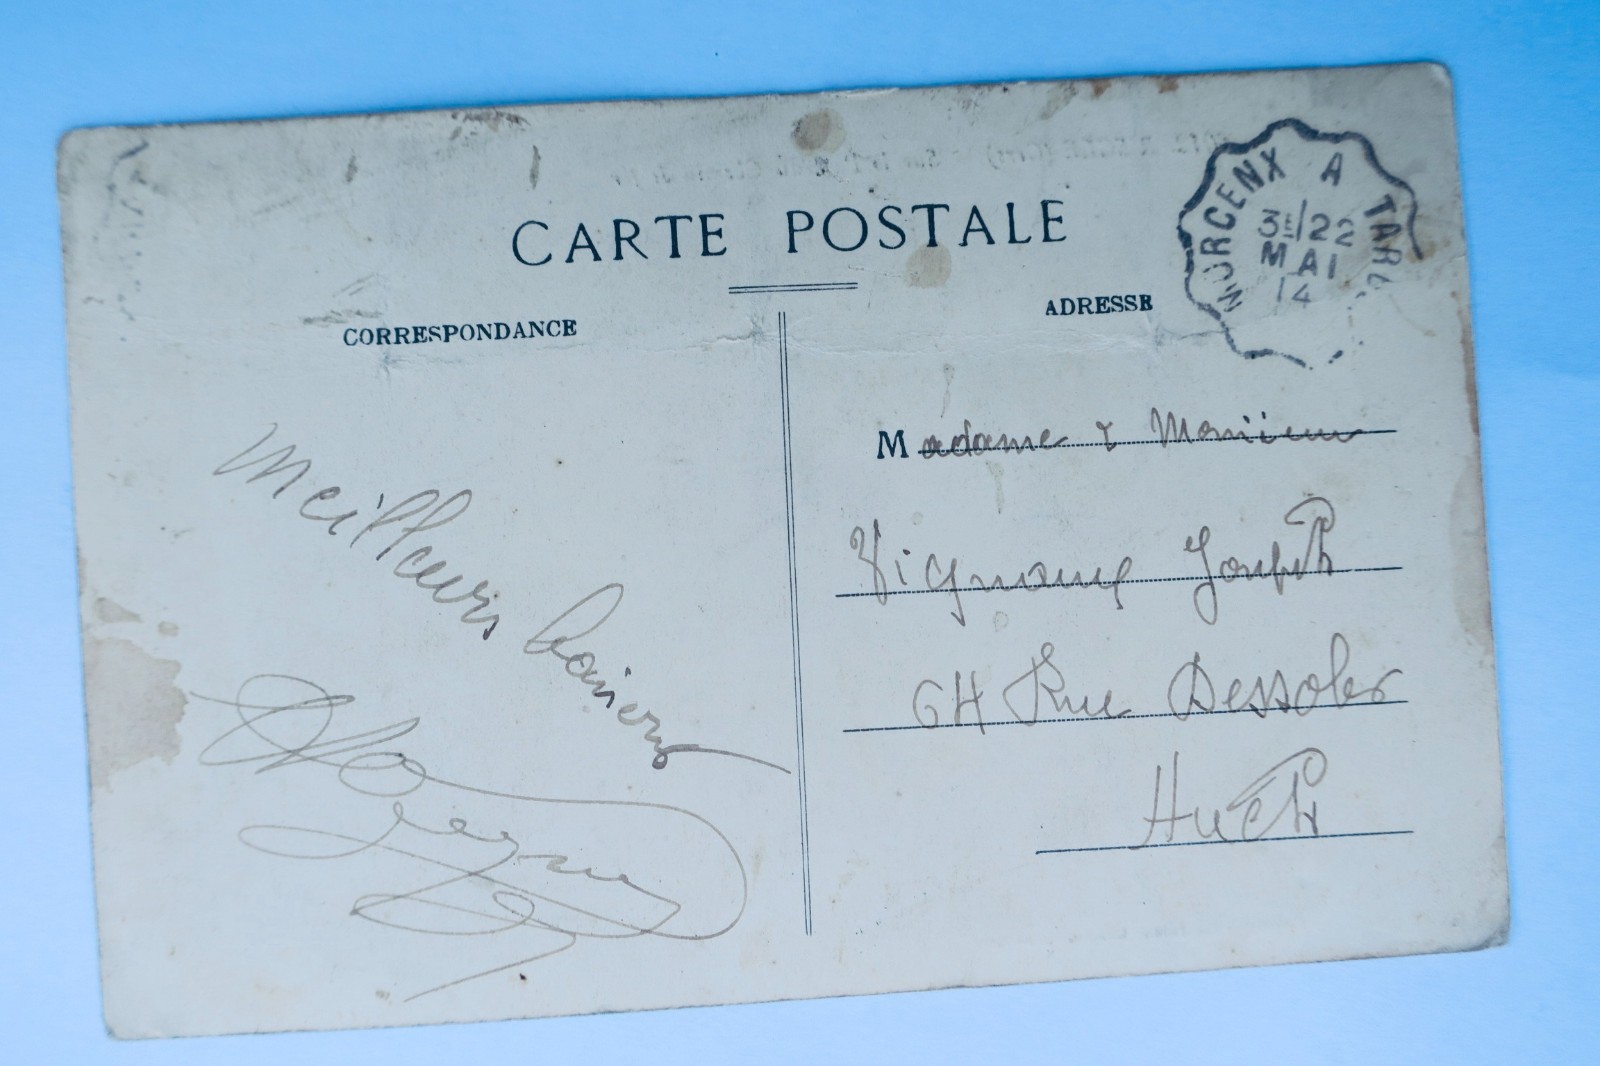 CARTE POSTALE
CORRESPONDANCE
ADRESSE
MORCENX A TARB
3E/22
MAI
14
Meilleurs baisers
Madame & Monsieur
Joseph
64 Rue Dessoles
Auch